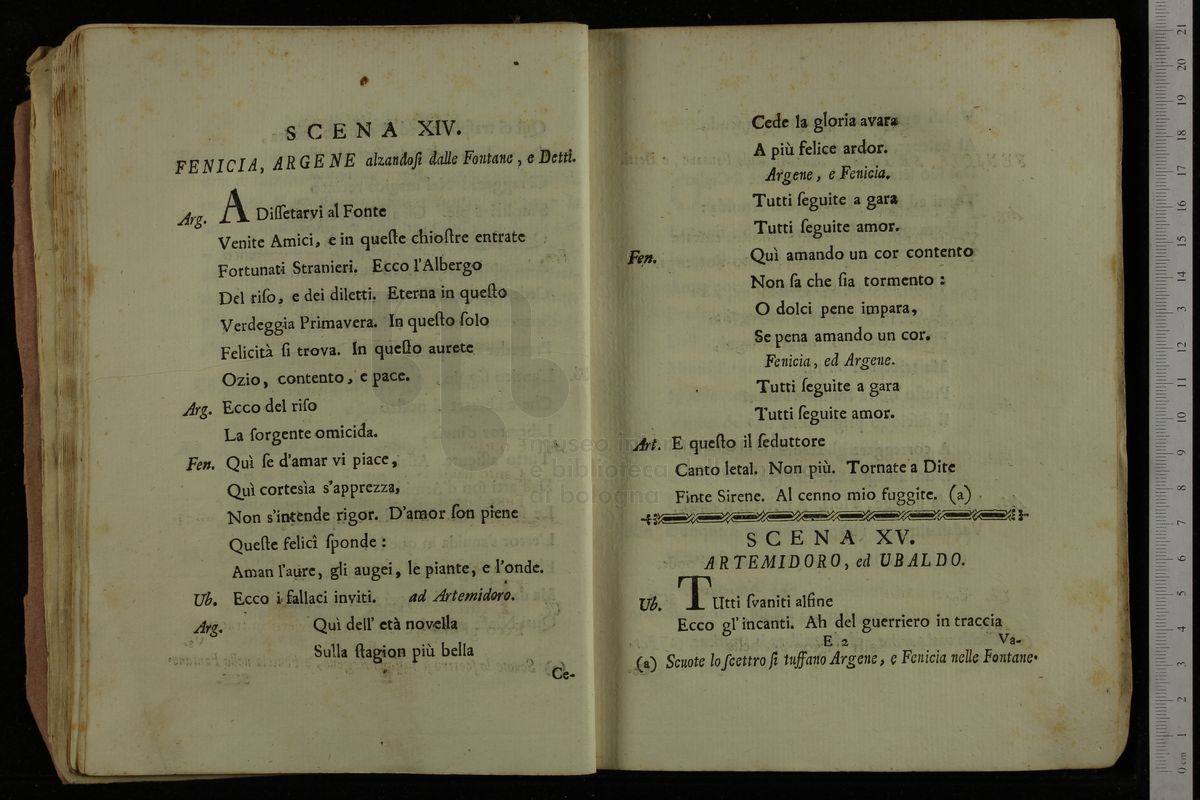 SCENA XIV.
FENICIA, ARGENE alzandoſi dalle Fontane, e Detti.
Arg. ADiſſetarvi al Fonte
Venite Amici, e in queſte chioſtre entrate
Fortunati Stranieri. Ecco l'Albergo
Del riſo, e dei diletti. Eterna in queſto
Verdeggia Primavera. In queſto ſolo
Felicità ſi trova. In queſto aurete
Ozio, contento, e pace.
Arg. Ecco del riſo
La ſorgente omicida.
Fen. Quì ſe d'amar vi piace,
Quì cortesìa s'apprezza,
Non s'intende rigor. D'amor ſon piene
Queſte felicî ſponde:
Aman l'aure, gli augei, le piante, e l'onde.
Ub. Ecco i fallaci inviti. ad Artemidoro.
Arg. Quì dell' età novella
Sulla ſtagion più bella
Ce-
Cede la gloria avara
A più felice ardor.
Argene, e Fenicia.
Tutti ſeguite a gara
Tutti ſeguite amor.
Fen. Quì amando un cor contento
Non ſa che ſia tormento:
O dolci pene impara,
Se pena amando un cor.
Fenicia, ed Argene.
Tutti ſeguite a gara
Tutti ſeguite amor.
Art. E queſto il ſeduttore
Canto letal. Non più. Tornate a Dite
Finte Sirene. Al cenno mio fuggite. (a)
SCENA XV.
ARTEMIDORO, ed UBALDO.
Ub. TUtti ſvaniti alfine
Ecco gl'incanti. Ah del guerriero in traccia
E 2 Va-
(a) Scuote lo ſcettro ſi tuffano Argene, e Fenicia nelle Fontane.
museo
e biblioteca
di bologna
0 cm 1 2 3 4 5 6 7 8 9 10 11 12 13 14 15 16 17 18 19 20 21